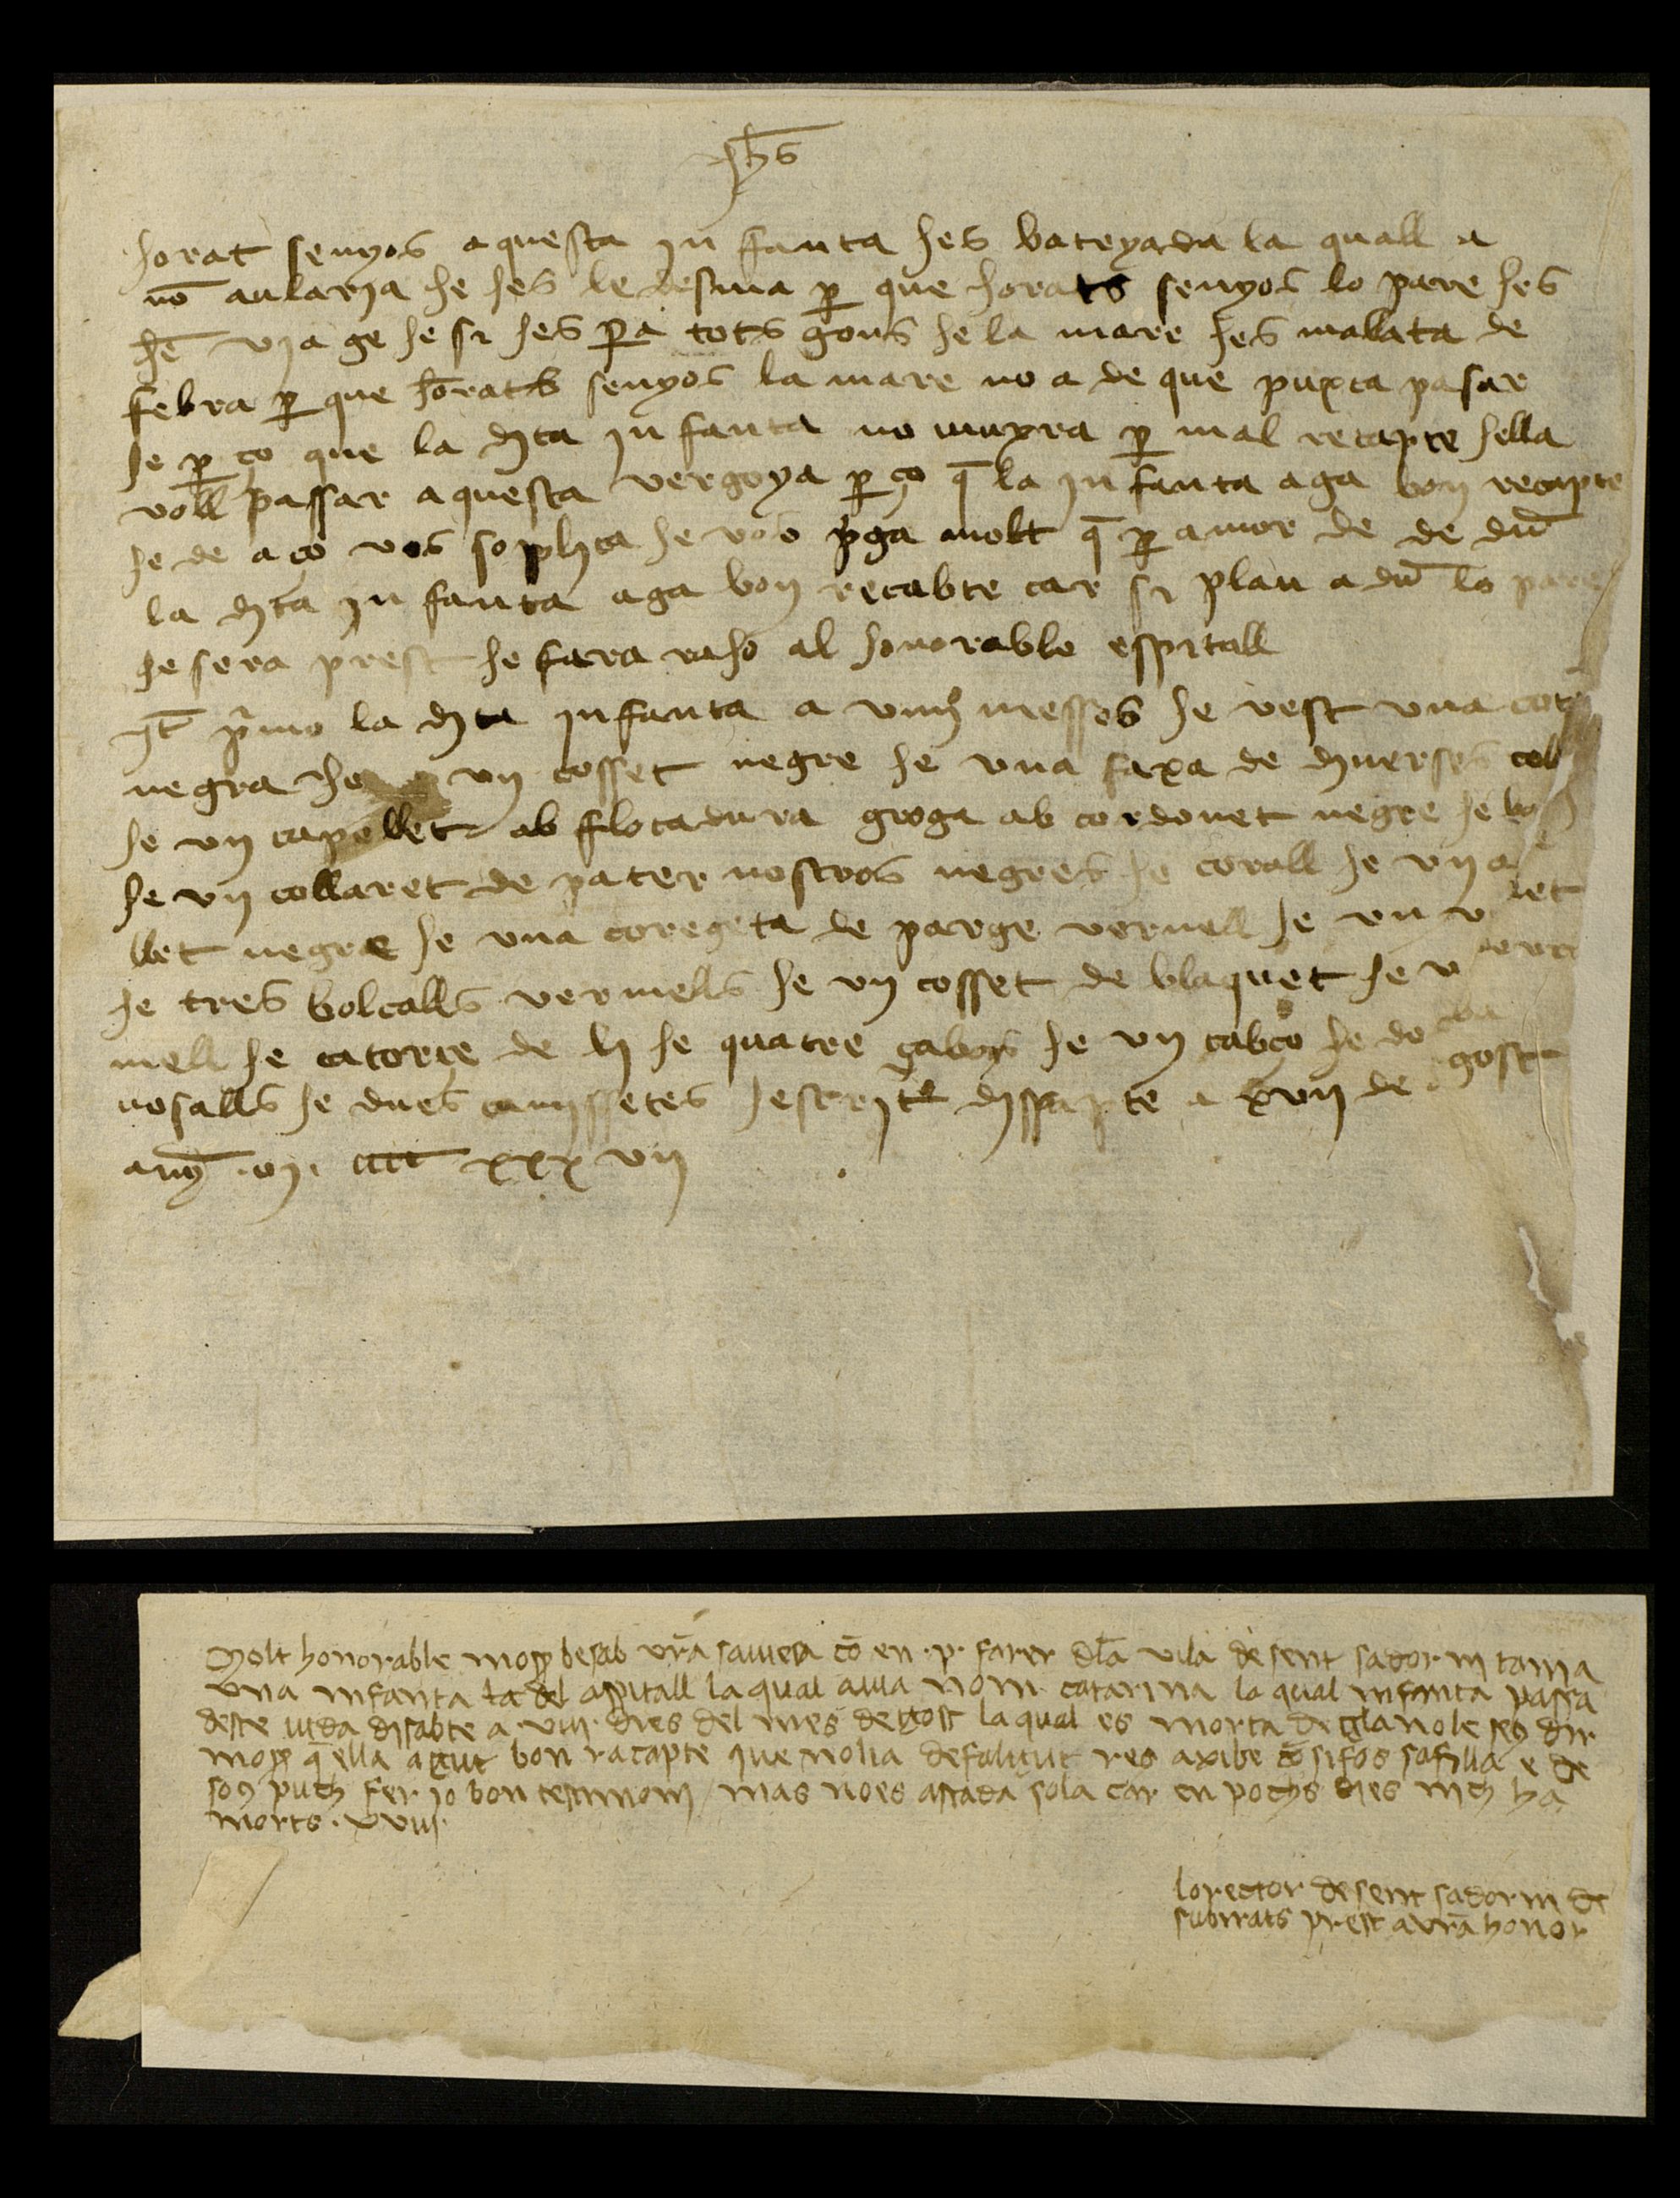 Jhs
horat senyos aquesta in fanta hes bateyada la quall a
nō aularia he hes ledesma p que horats senyos lo pare hes
hē viage he si hes pa tots gons he la mare hes malata de
febra p que hōrats senyos la mare no a de que puxca pasar
he p ço que la dita in fanta no muyra p mal recapte hella
voll passar aquesta vergoya p ço q̄ la in fanta aga bon recapte
he de aço vos soplica he vos pga molt q̄ p amor de de dū
la dita in fanta aga bon recabte car si plau a dū lo pare
he sera prest he fara raho al honorable espitall
it p̄mo la dita infanta a viiij messes he vest una cot
negra he un cosset negre he una faxa de diverses coll
he un capellet ab flocadura groga ab cordonet negre he
he un collaret de pater nostros negres he corall he un
llet negre he una coregeta de parge vermell he un
he tres bolcalls vermells he un cosset de blaquet he v
mell he catorçe de li he quatre çabors he un cabço he do
vosalls he dues camissetes hescrit dissapte a xvii de gost
any m cccc xxx vii
Molt honorable mosp besab vrā saviesa cō en .p. farer dla vila de sent sadorni tania
una infanta ta del aspitall la qual avia nom catarina la qual infanta passa
deste vida disabte a .viii. dies del mes degost la qual es morta de glanole seg dir
mosp q̄ ella agut bon racapte que nolia defaligut res axibe cō sifos safilla e de
so puch fer jo bon testimoni / mas noes astada sola car en pochs dies nich ha
morts . xviii.
lo rector de sent sadorni de
subirats prest a vrā honor